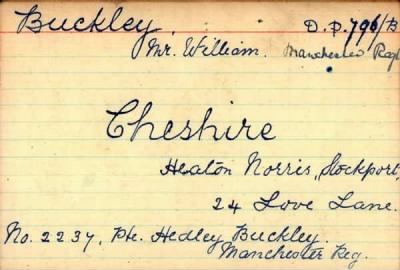 Buckley. D.P. 796/B
Mr. William. Manchester Regt
Cheshire
Heaton Norris, Stockport,
24 Love Lane.
No. 2237, Pte. Hedley Buckley.
Manchester Reg.